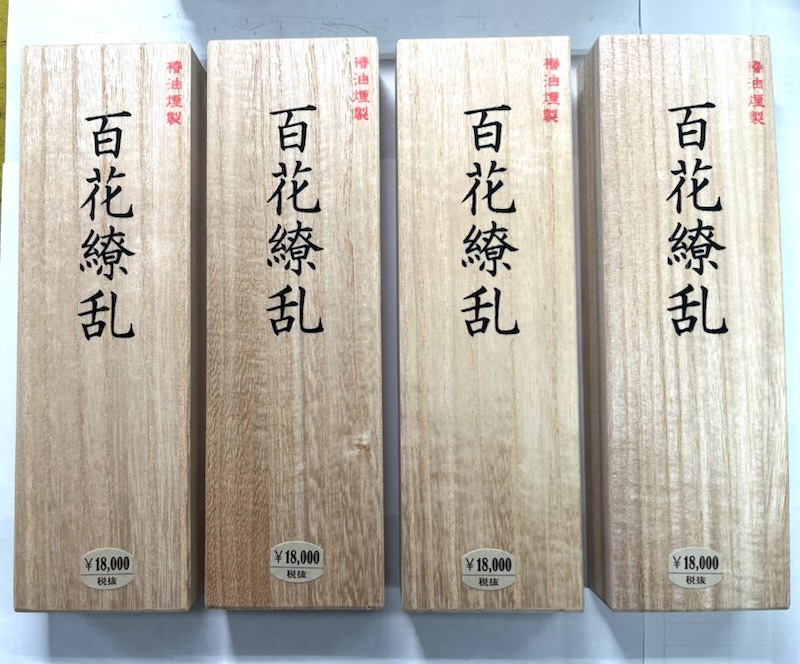 椿油煙製
百花繚乱
¥18,000
税抜
椿油煙製
百花繚乱
¥18,000
税抜
椿油煙製
百花繚乱
¥18,000
税抜
椿油煙製
百花繚乱
¥18,000
税抜